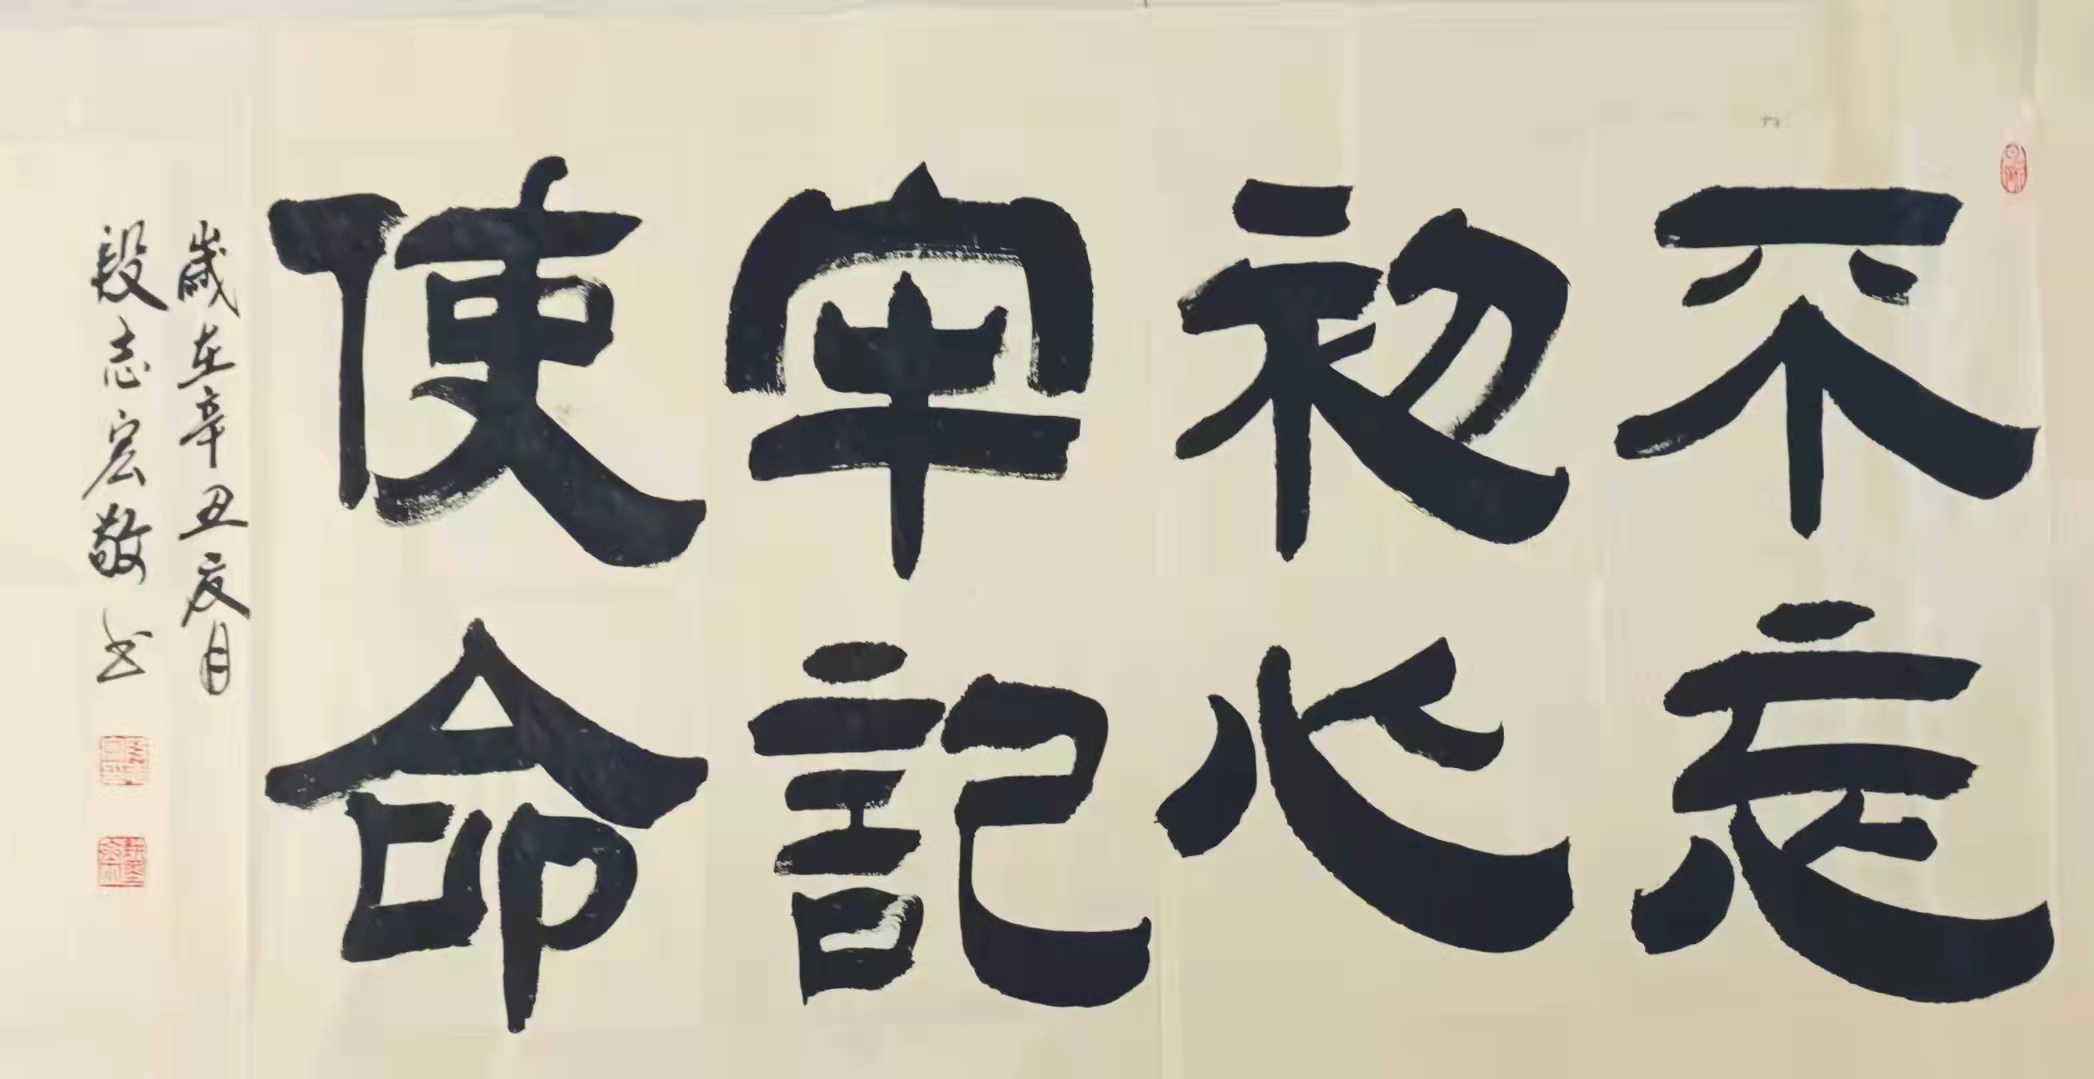 不忘
初心
牢記
使命
歲在辛丑夏月
段志宏敬书